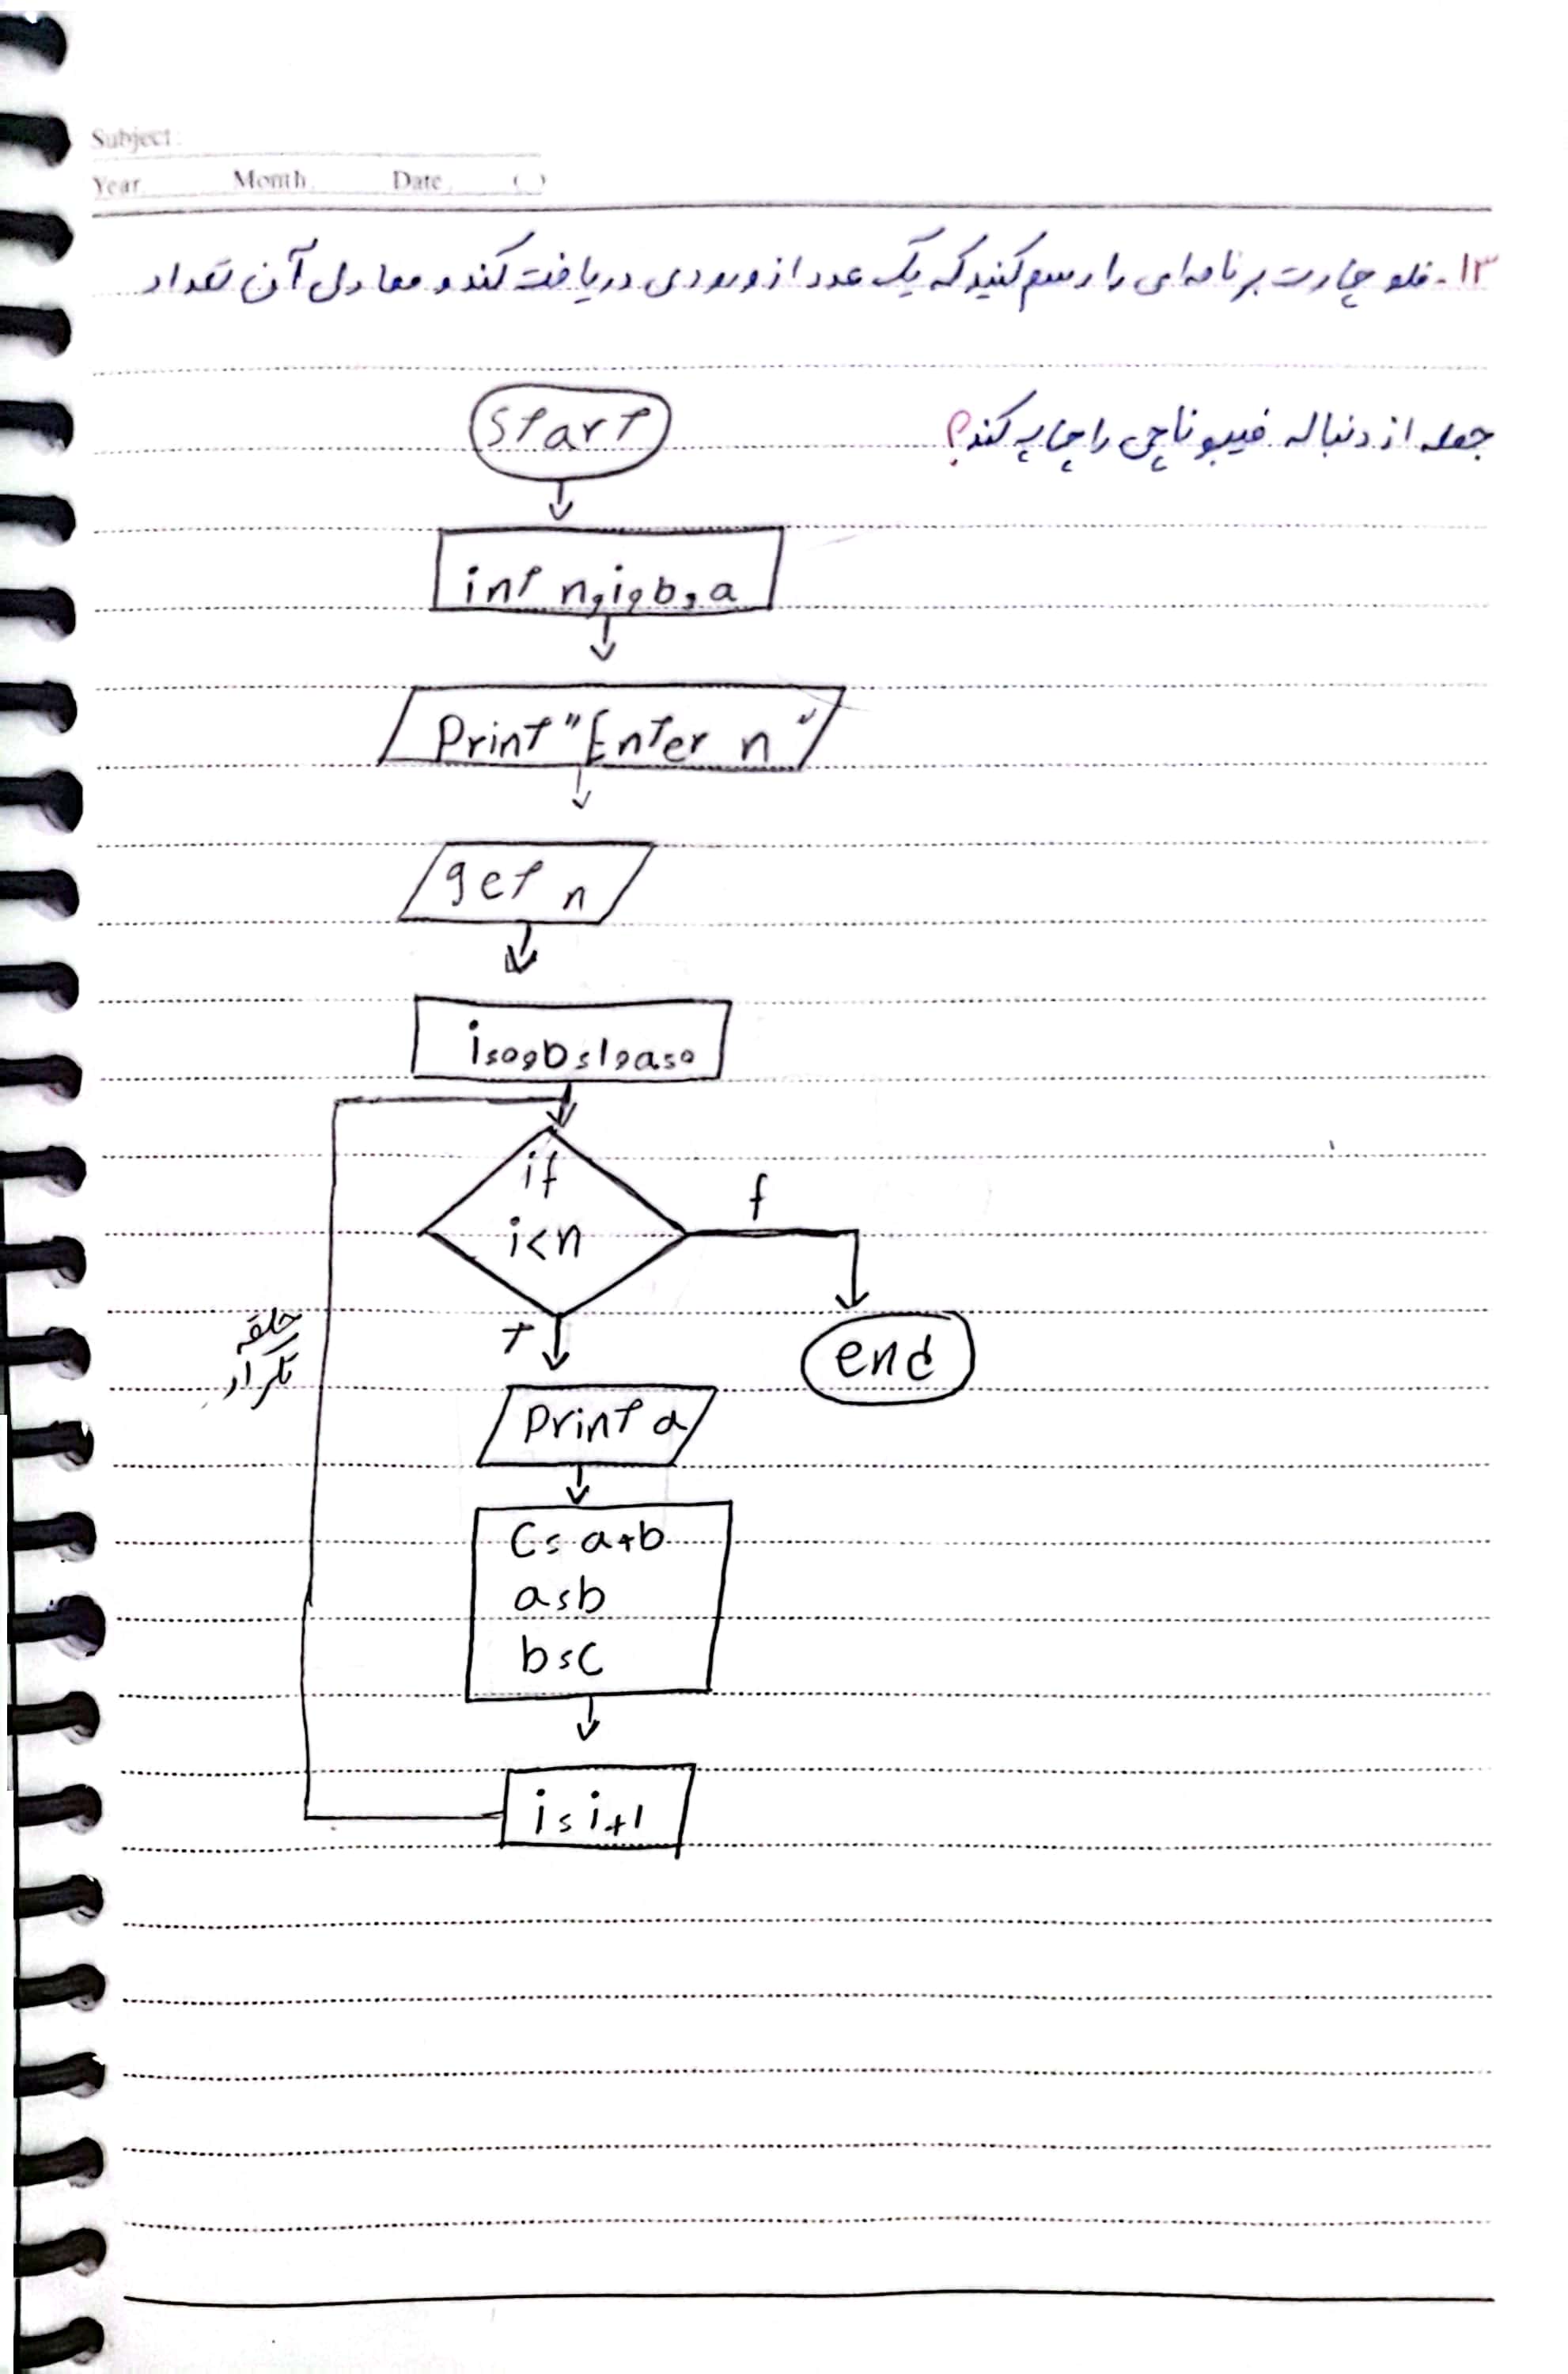 Subject:
Year. Month. Date. ( )
۱۳- فلو چارت برنامه‌ای را رسم کنید که یک عدد از ورودی دریافت کند و معادل آن تعداد
جمله از دنباله فیبوناچی را چاپ کند؟
start
int n,i,b,a
Print "Enter n"
get n
i=0,b=1,a=0
if
i<n
f
T
end
حلقه
تکرار
Print a
C=a+b
a=b
b=c
i=i+1